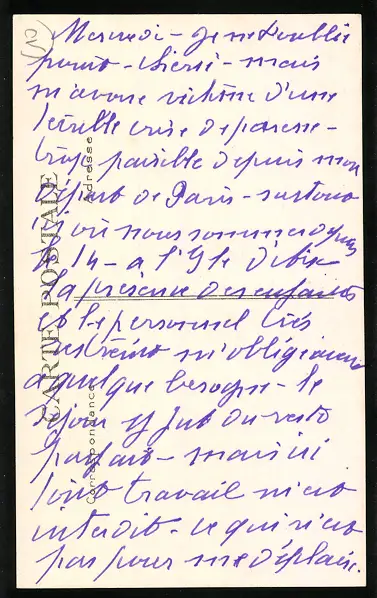 (10)
Mercredi - Je ne t'oublie
point - chérie - mais
m'avoue victime d'une
terrible crise de paresse -
trop paisible depuis mon
départ de Paris - surtout
ici où nous sommes depuis
le 14 - à l'Ile d'
la présence des enfants
et le personnel très
restreint m'obligeaient
à quelque besogne - le
séjour y fut du reste
parfait - mais ici
tout travail m'est
interdit - ce qui n'est
pas pour me déplaire.
CARTE POSTALE
Correspondance
Adresse